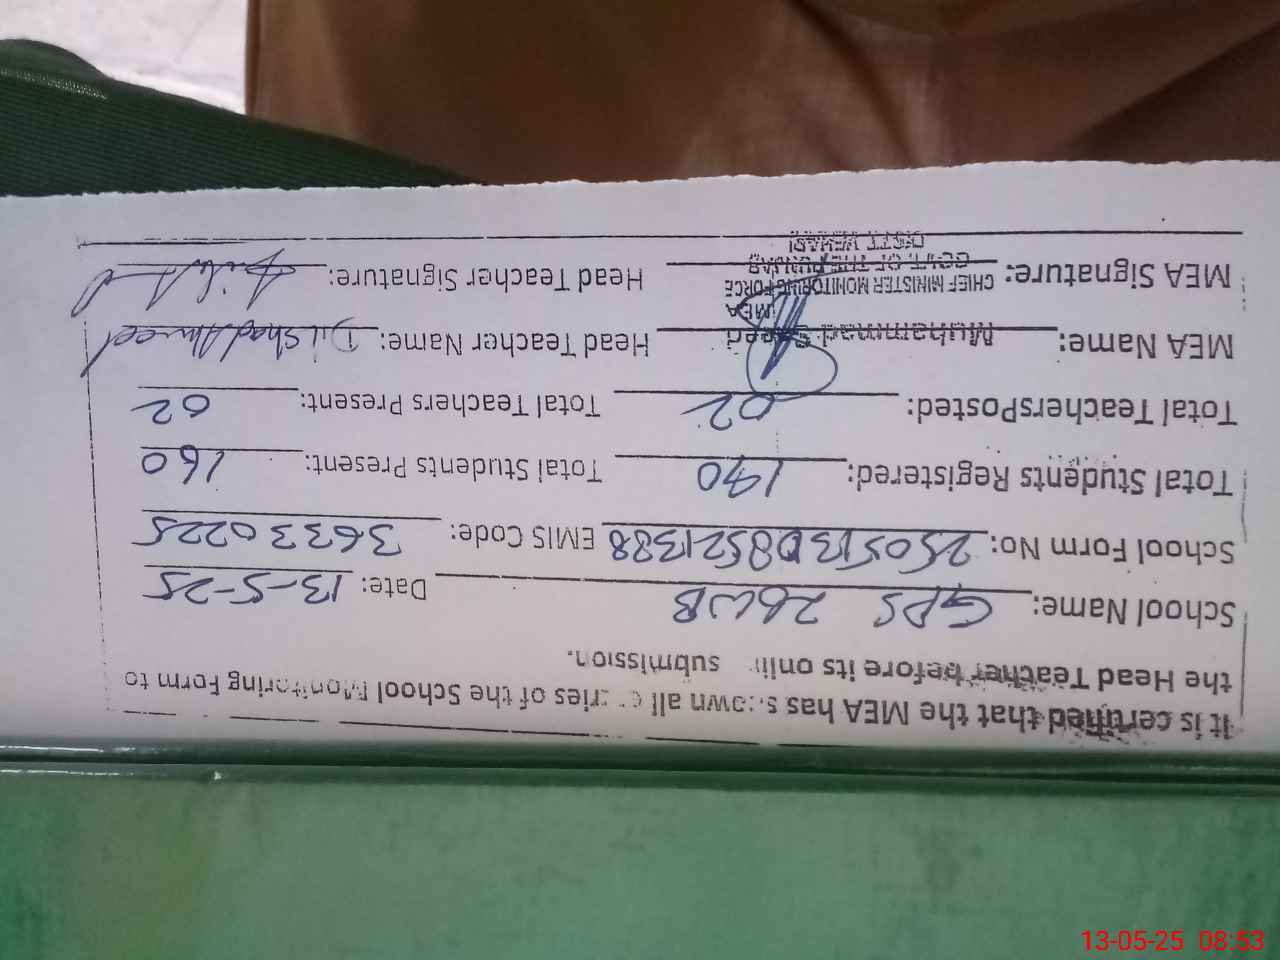 It is certified that the MEA has shown all entries of the School Monitoring Form to
the Head Teacher before its online submission.
School Name: GPS 26WB Date: 13-5-25
School Form No: 25051308521388 EMIS Code: 36330225
Total Students Registered: 190 Total Students Present: 160
Total TeachersPosted: 02 Total Teachers Present: 02
MEA Name: Muhammad Saeed Head Teacher Name: Dilshad Ahmed
MEA
CHIEF MINISTER MONITORING FORCE
MEA Signature: GOVT. OF THE PUNJAB Head Teacher Signature:
DISTT. VEHARI
13-05-25 08:53